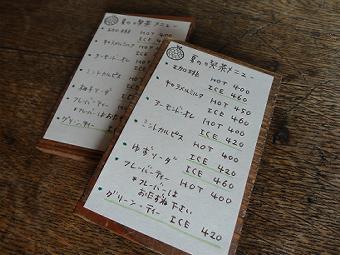 夏の喫茶メニュー
エカロ珈琲 HOT 400
ICE 460
キャラメルミルク HOT 400
ICE 460
アーモンドオレ HOT 400
ICE 420
ミントカルピス HOT 450
ICE 420
ゆずソーダ ICE 460
フレーバーティー HOT 400
*フレーバーは
お尋ね下さい
グリーンティー ICE 420
夏の喫茶メニュー
HOT 400
ICE 460
キャラメルミルク
アーモンドオレ
ミントカルピス
ゆずソーダ
フレーバーティー
グリーンティー